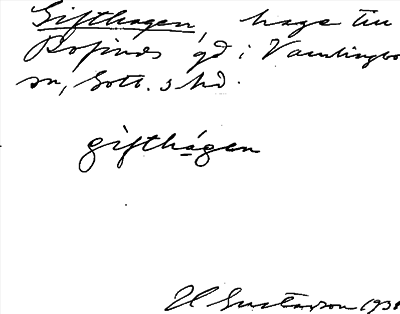 Gifthagen, hage till
Rofinds gd i Vamlingbo
sn, Gotl. s hd.
gifthágen
H Gustavson 193